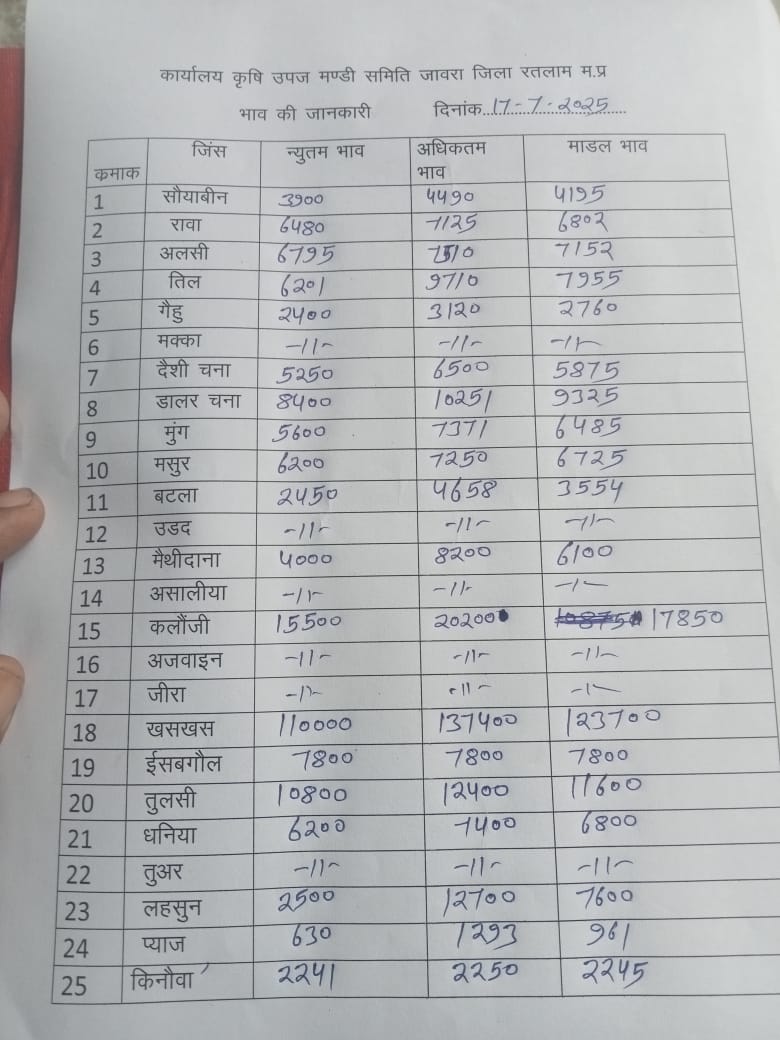 कार्यालय कृषि उपज मण्डी समिति जावरा जिला रतलाम म.प्र
भाव की जानकारी दिनांक...17-7-2025......
कमाक जिंस न्युतम भाव अधिकतम भाव माडल भाव
1 सौयाबीन 3900 4490 4195
2 रावा 6480 7125 6802
3 अलसी 6795 7510 7152
4 तिल 6201 9710 7955
5 गैहु 2400 3120 2760
6 मक्का -11- -11- -11-
7 दैशी चना 5250 6500 5875
8 डालर चना 8400 10251 9325
9 मुंग 5600 7371 6485
10 मसुर 6200 7250 6725
11 बटला 2450 4658 3554
12 उडद -11- -11- -11-
13 मैथीदाना 4000 8200 6100
14 असालीया -11- -11- -1-
15 कलौंजी 15500 20200 17850
16 अजवाइन -11- -11- -11-
17 जीरा -11- -11- -1-
18 खसखस 110000 137400 123700
19 ईसबगौल 7800 7800 7800
20 तुलसी 10800 12400 11600
21 धनिया 6200 7400 6800
22 तुअर -11- -11- -11-
23 लहसुन 2500 12700 7600
24 प्याज 630 1293 961
25 किनौवा 2241 2250 2245